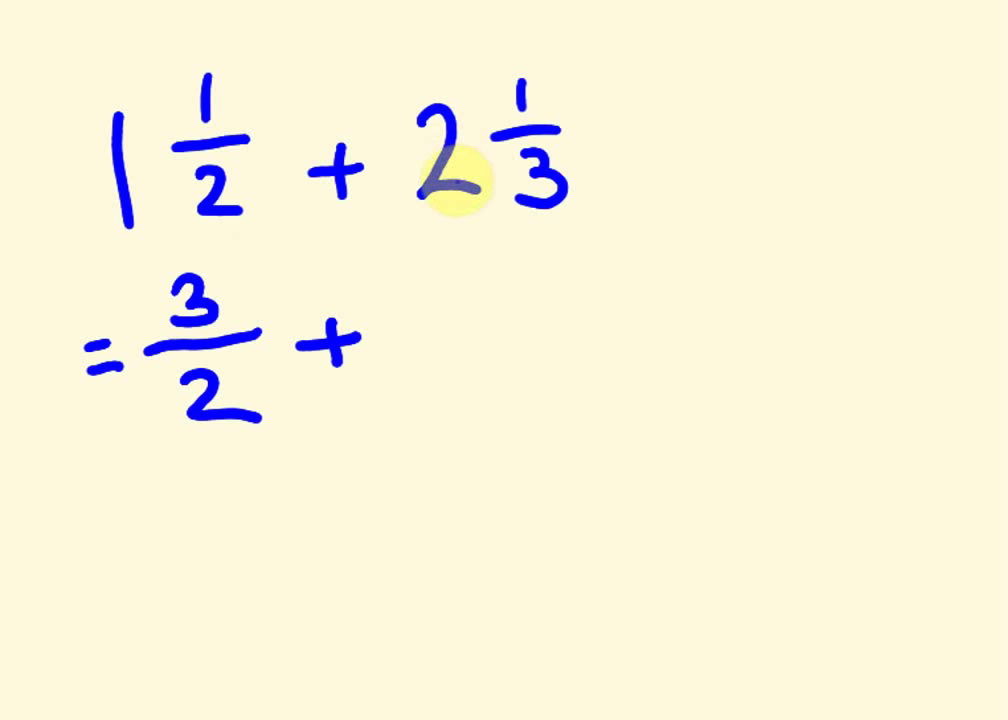 1 1/2 + 2 1/3
= 3/2 +